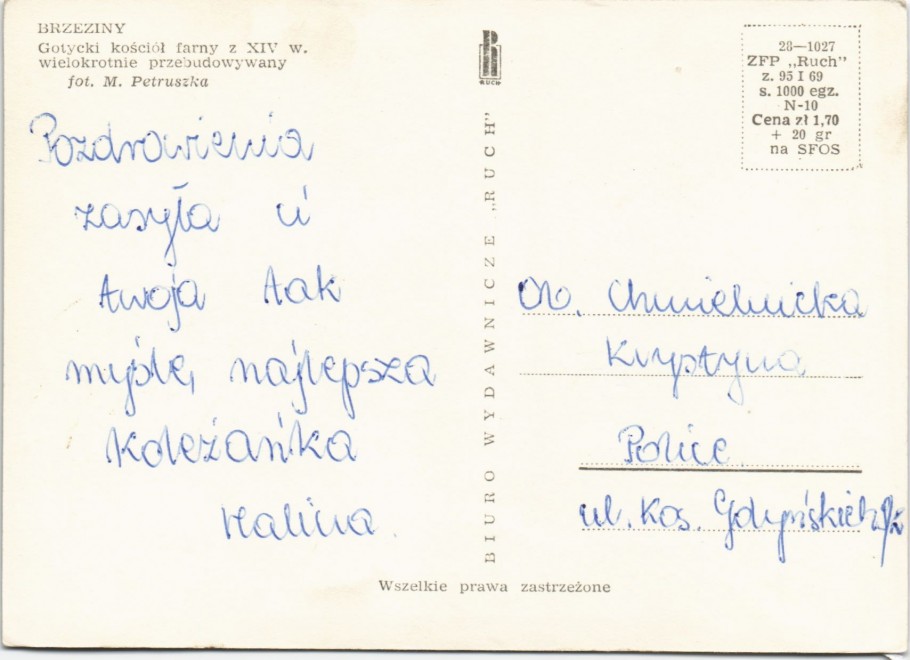 BRZEZINY
Gotycki kościół farny z XIV w.
wielokrotnie przebudowywany
fot. M. Petruszka
Pozdrowienia
zasyła ci
twoja tak
myślę, najlepsza
Koleżanka
Halina
RUCH
BIURO WYDAWNICZE „RUCH”
28—1027
ZFP „Ruch”
z. 95 I 69
s. 1000 egz.
N-10
Cena zł 1,70
+ 20 gr
na SFOS
Ob. Chmielnicka
Krystyna
Police
ul. Kos. Gdyńskich
Wszelkie prawa zastrzeżone